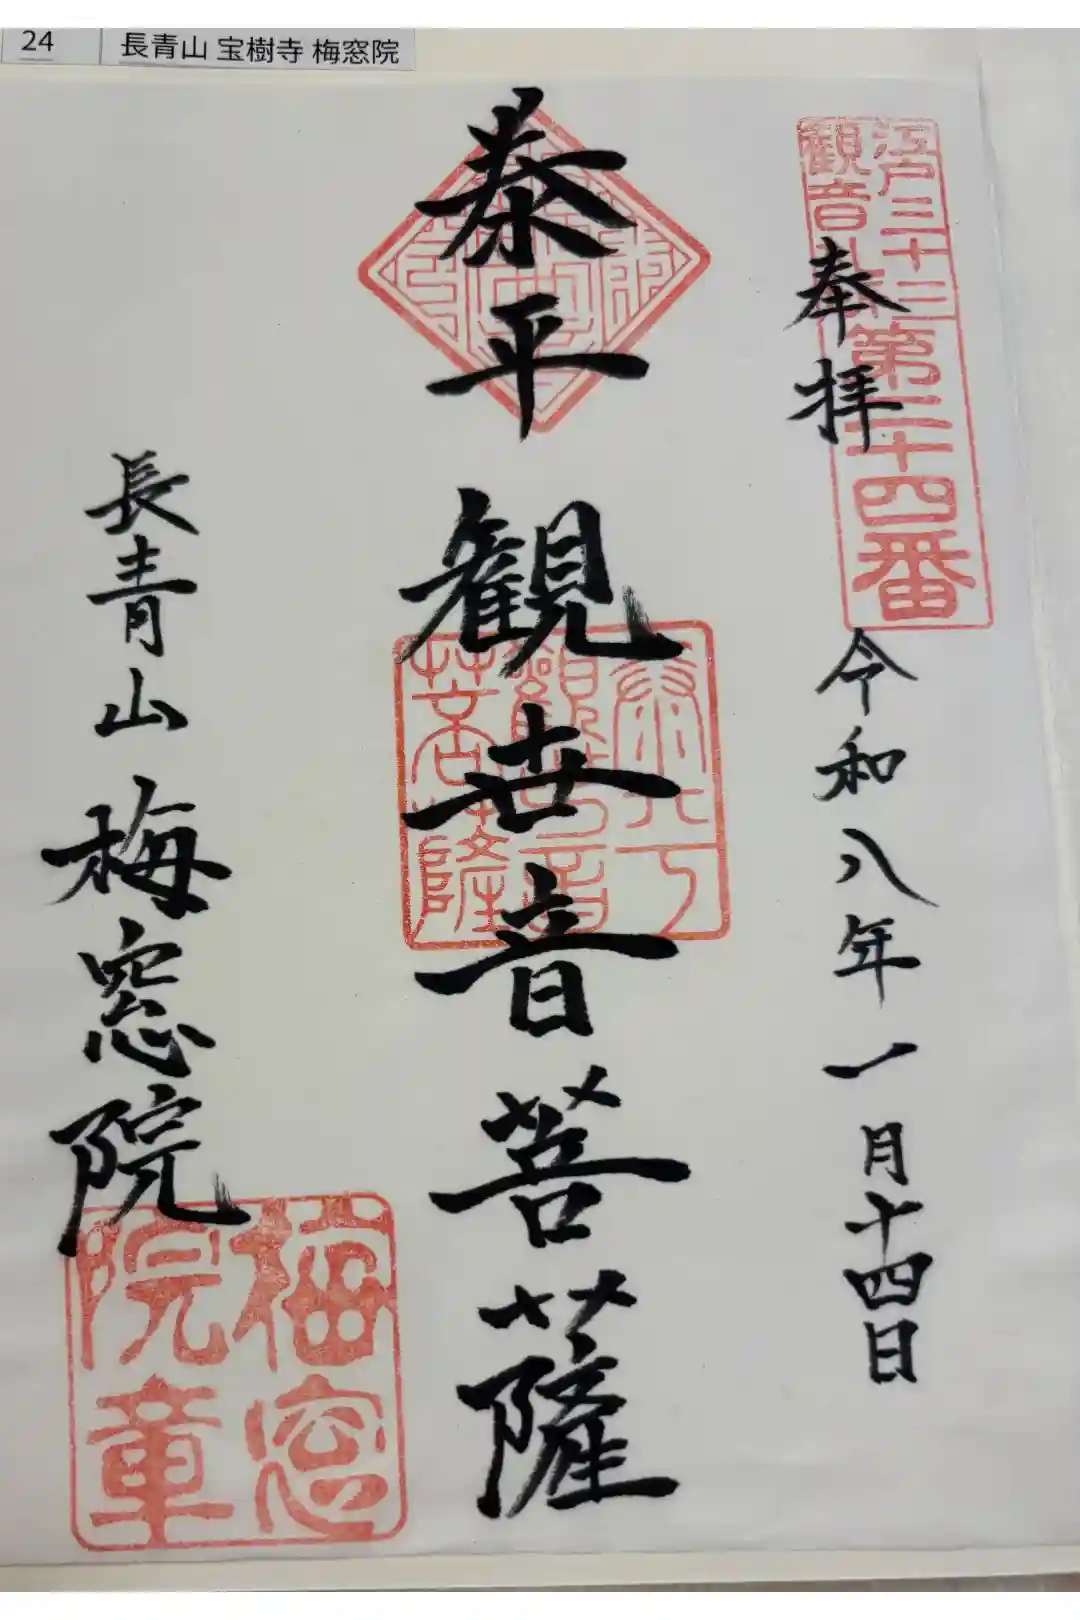 24
長青山 宝樹寺 梅窓院
江戸三十三
観音札所
第二十四番
奉拝
令和八年一月十四日
泰平観世音菩薩
長青山 梅窓院
梅窓
院章